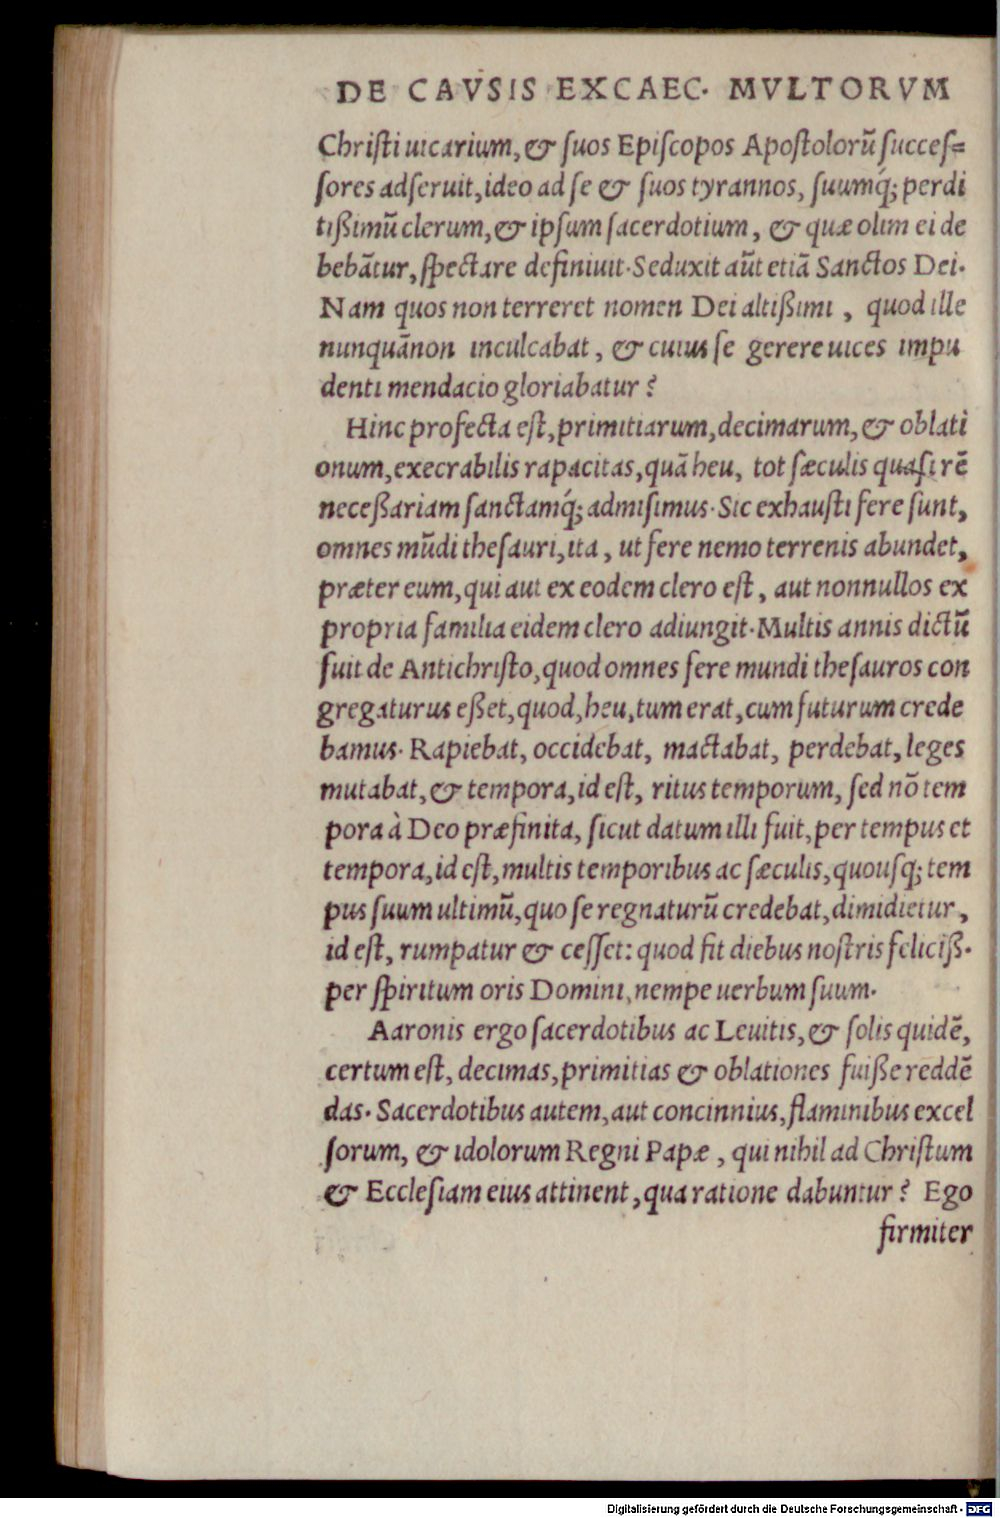 DE CAVSIS EXCAEC. MVLTORVM
Christi uicarium, & suos Episcopos Apostolorū succes=
sores adseruit, ideo ad se & suos tyrannos, suumq́; perdi
tißimū clerum, & ipsum sacerdotium, & quæ olim ei de
bebātur, spectare definiuit. Seduxit aūt etiā Sanctos Dei.
Nam quos non terreret nomen Dei altißimi, quod ille
nunquānon inculcabat, & cuius se gerere uices impu
denti mendacio gloriabatur?
Hinc profecta est, primitiarum, decimarum, & oblati
onum, execrabilis rapacitas, quā heu, tot sæculis quasi rē
neceßariam sanctamq́; admisimus. Sic exhausti fere sunt,
omnes mūdi thesauri, ita, ut fere nemo terrenis abundet,
præter eum, qui aut ex eodem clero est, aut nonnullos ex
propria familia eidem clero adiungit. Multis annis dictū
fuit de Antichristo, quod omnes fere mundi thesauros con
gregaturus eßet, quod, heu, tum erat, cum futurum crede
bamus. Rapiebat, occidebat, mactabat, perdebat, leges
mutabat, & tempora, id est, ritus temporum, sed nō tem
pora à Deo præfinita, sicut datum illi fuit, per tempus et
tempora, id est, multis temporibus ac sæculis, quousq; tem
pus suum ultimū, quo se regnaturū credebat, dimidietur,
id est, rumpatur & cesset: quod fit diebus nostris feliciß.
per spiritum oris Domini, nempe uerbum suum.
Aaronis ergo sacerdotibus ac Leuitis, & solis quidē,
certum est, decimas, primitias & oblationes fuiße reddē
das. Sacerdotibus autem, aut concinnius, flaminibus excel
sorum, & idolorum Regni Papæ, qui nihil ad Christum
& Ecclesiam eius attinent, qua ratione dabuntur? Ego
firmiter
Digitalisierung gefördert durch die Deutsche Forschungsgemeinschaft - DFG